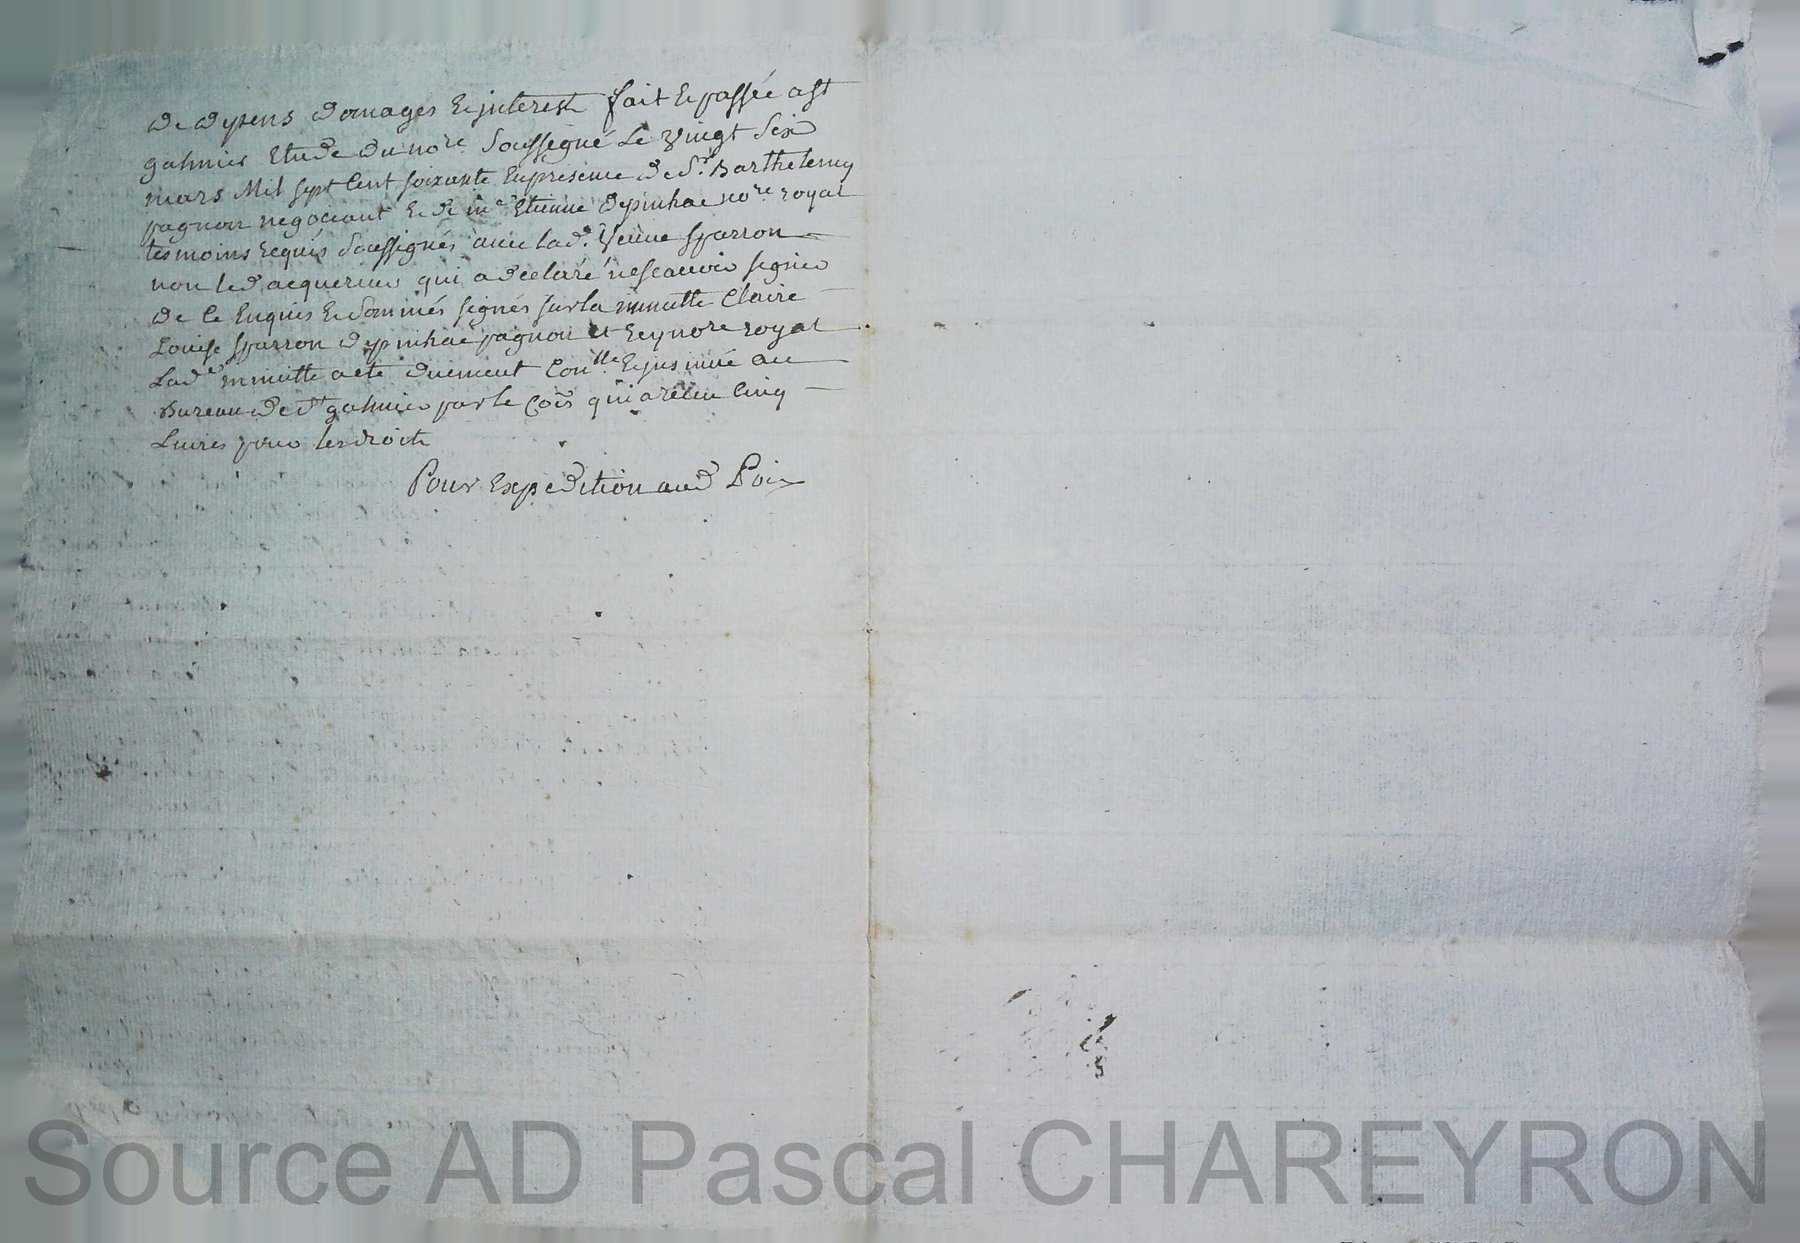 de depens domages & interest fait & passée a st
galmier Etude du nore soussigné Le vingt six
mars Mil sept Cent soixante En presence de Sr. Barthelemy
pagnon negociant & de me Etienne depinhac nore royal
tesmoins requis soussignés avec lade. veuve sparron
non led acquereur qui a declaré ne scavoir signer
de ce Enquis & sommés signés sur la minutte Claire
Louise sparron depinhac pagnon et nore royal
Lade minutte a eté duement Conlle. & insinué au
Bureau de st galmier par le Cois qui a recu Cinq
Livres pour les droits
Pour Expedition aud
Source AD Pascal CHAREYRON